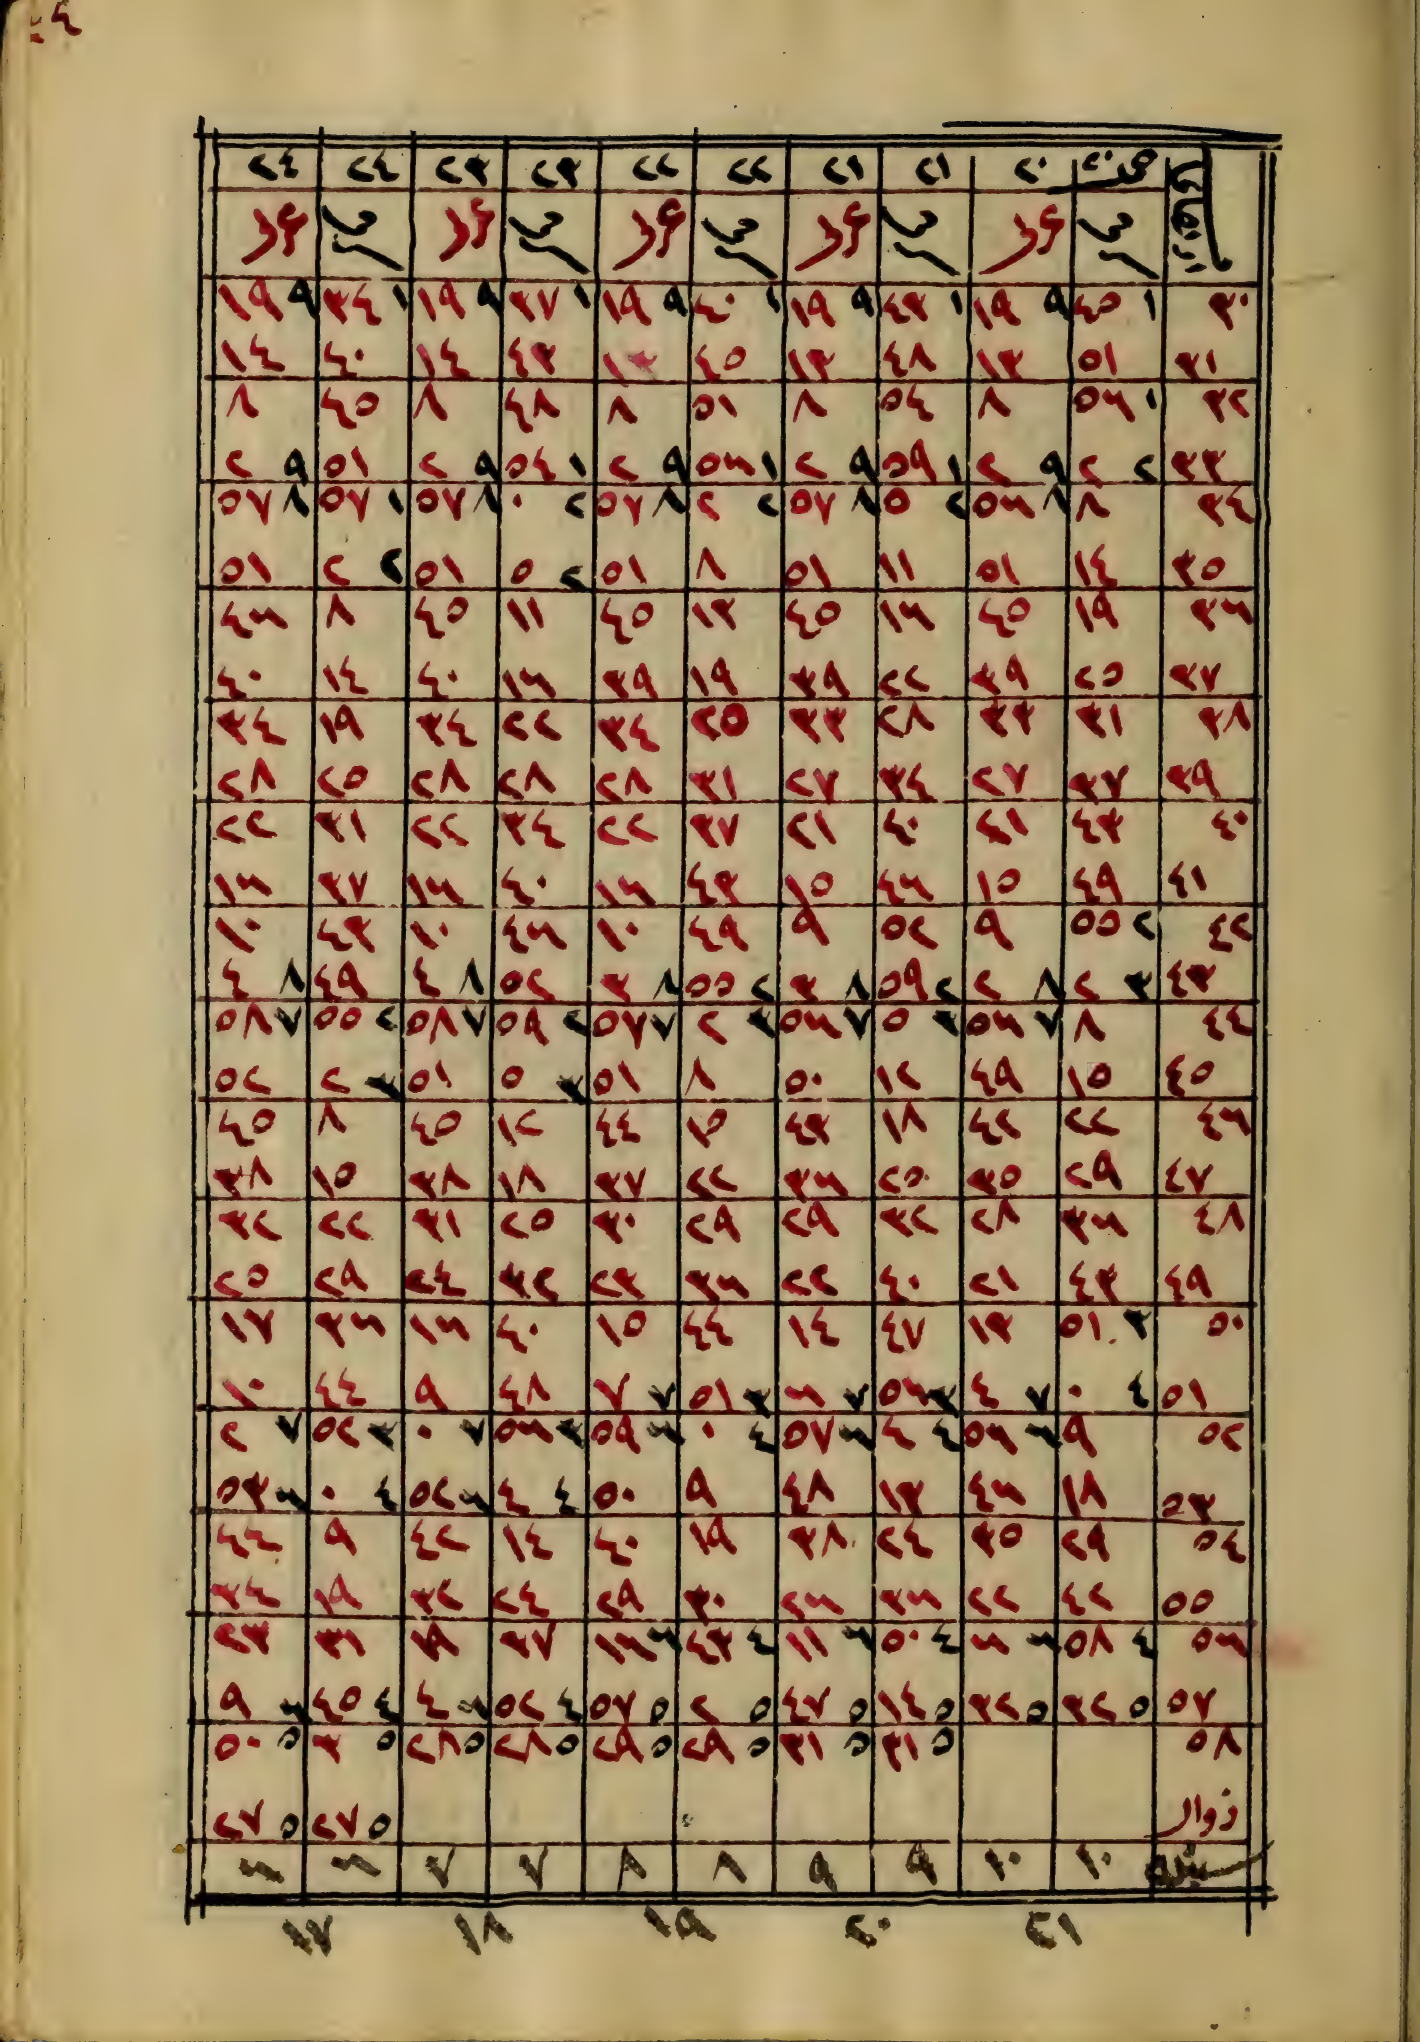 ارتفاع ٢٠ ٢٠ ٢١ ٢١ ٢٢ ٢٢ ٢٣ ٢٣ ٢٤ ٢٤
٣٠ ١ ٤٥ ٩ ١٩ ١ ٤٣ ٩ ١٩ ١ ٤٠ ٩ ١٩ ١ ٣٧ ٩ ١٩ ١ ٣٤ ٩ ١٩
٣١ ٥١ ١٣ ٤٨ ١٣ ٤٥ ١٣ ٤٣ ١٤ ٤٠ ١٤
٣٢ ١ ٥٦ ٨ ٥٤ ٨ ٥١ ٨ ٤٨ ٨ ٤٥ ٨
٣٣ ٢ ٢ ٩ ٢ ١ ٥٩ ٩ ٢ ١ ٥٦ ٩ ٢ ١ ٥٤ ٩ ٢ ٥١ ٩ ٢
٣٤ ٨ ٨ ٥٦ ٢ ٥ ٨ ٥٧ ٢ ٢ ٨ ٥٧ ٢ ٠ ٨ ٥٧ ١ ٥٧ ٨ ٥٧
٣٥ ١٤ ٥١ ١١ ٥١ ٨ ٥١ ٢ ٥ ٥١ ٢ ٢ ٥١
٣٦ ١٩ ٤٥ ١٦ ٤٥ ١٣ ٤٥ ١١ ٤٥ ٨ ٤٦
٣٧ ٢٥ ٣٩ ٢٢ ٣٩ ١٩ ٣٩ ١٦ ٤٠ ١٤ ٤٠
٣٨ ٣١ ٣٣ ٢٨ ٣٣ ٢٥ ٣٤ ٢٢ ٣٤ ١٩ ٣٤
٣٩ ٣٧ ٢٧ ٣٤ ٢٧ ٣١ ٢٨ ٢٨ ٢٨ ٢٥ ٢٨
٤٠ ٤٣ ٢١ ٤٠ ٢١ ٣٧ ٢٢ ٣٤ ٢٢ ٣١ ٢٢
٤١ ٤٩ ١٥ ٤٦ ١٥ ٤٣ ١٦ ٤٠ ١٦ ٣٧ ١٦
٤٢ ٢ ٥٥ ٩ ٥٢ ٩ ٤٩ ١٠ ٤٦ ١٠ ٤٣ ١٠
٤٣ ٣ ٢ ٨ ٢ ٢ ٥٩ ٨ ٣ ٢ ٥٥ ٨ ٣ ٥٢ ٨ ٤ ٤٩ ٨ ٤
٤٤ ٨ ٧ ٥٦ ٣ ٥ ٧ ٥٦ ٣ ٢ ٧ ٥٧ ٢ ٥٩ ٧ ٥٨ ٢ ٥٥ ٧ ٥٨
٤٥ ١٥ ٤٩ ١٢ ٥٠ ٨ ٥١ ٣ ٥ ٥١ ٣ ٢ ٥٢
٤٦ ٢٢ ٤٢ ١٨ ٤٣ ١٥ ٤٤ ١٢ ٤٥ ٨ ٤٥
٤٧ ٢٩ ٣٥ ٢٥ ٣٦ ٢٢ ٣٧ ١٨ ٣٨ ١٥ ٣٨
٤٨ ٣٦ ٢٨ ٣٢ ٢٩ ٢٩ ٣٠ ٢٥ ٣١ ٢٢ ٣٢
٤٩ ٤٣ ٢١ ٤٠ ٢٢ ٣٦ ٢٣ ٣٢ ٢٤ ٢٩ ٢٥
٥٠ ٣ ٥١ ١٣ ٤٧ ١٤ ٤٤ ١٥ ٤٠ ١٦ ٣٦ ١٧
٥١ ٤ ٠ ٧ ٤ ٣ ٥٦ ٧ ٦ ٣ ٥١ ٧ ٧ ٤٨ ٩ ٤٤ ١٠
٥٢ ٩ ٦ ٥٦ ٤ ٤ ٦ ٥٧ ٤ ٠ ٦ ٥٩ ٣ ٥٦ ٧ ٠ ٣ ٥٢ ٧ ٢
٥٣ ١٨ ٤٦ ١٣ ٤٨ ٩ ٥٠ ٤ ٤ ٦ ٥٢ ٤ ٠ ٦ ٥٣
٥٤ ٢٩ ٣٥ ٢٤ ٣٨ ١٩ ٤٠ ١٤ ٤٢ ٩ ٤٤
٥٥ ٤٢ ٢٢ ٣٦ ٢٦ ٣٠ ٢٩ ٢٤ ٣٢ ١٩ ٣٤
٥٦ ٤ ٥٨ ٦ ٦ ٤ ٥٠ ٦ ١١ ٤ ٤٣ ٦ ١٦ ٣٧ ١٩ ٣١ ٢٣
٥٧ ٥ ٣٢ ٥ ٣٢ ٥ ١٤ ٥ ٤٧ ٥ ٢ ٥ ٥٧ ٤ ٥٢ ٦ ٤ ٤ ٤٥ ٦ ٩
٥٨ ٥ ٣١ ٥ ٣١ ٥ ٢٩ ٥ ٢٩ ٥ ٢٨ ٥ ٢٨ ٥ ٣ ٥ ٥٠
زوال ٥ ٢٧ ٥ ٢٧
١٠ ١٠ ٩ ٩ ٨ ٨ ٧ ٧ ٦ ٦
٢١ ٢٠ ١٩ ١٨ ١٧